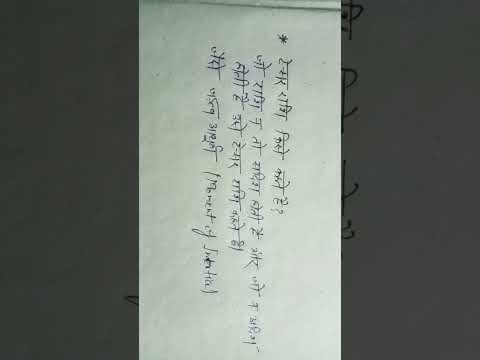 * टेन्सर राशि किसे कहते है?
जो राशि न तो सदिश होती है और जो न अदिश
होती है उसे टेन्सर राशि कहते है।
जैसे जड़त्व आघूर्ण (Moment of Inertia)